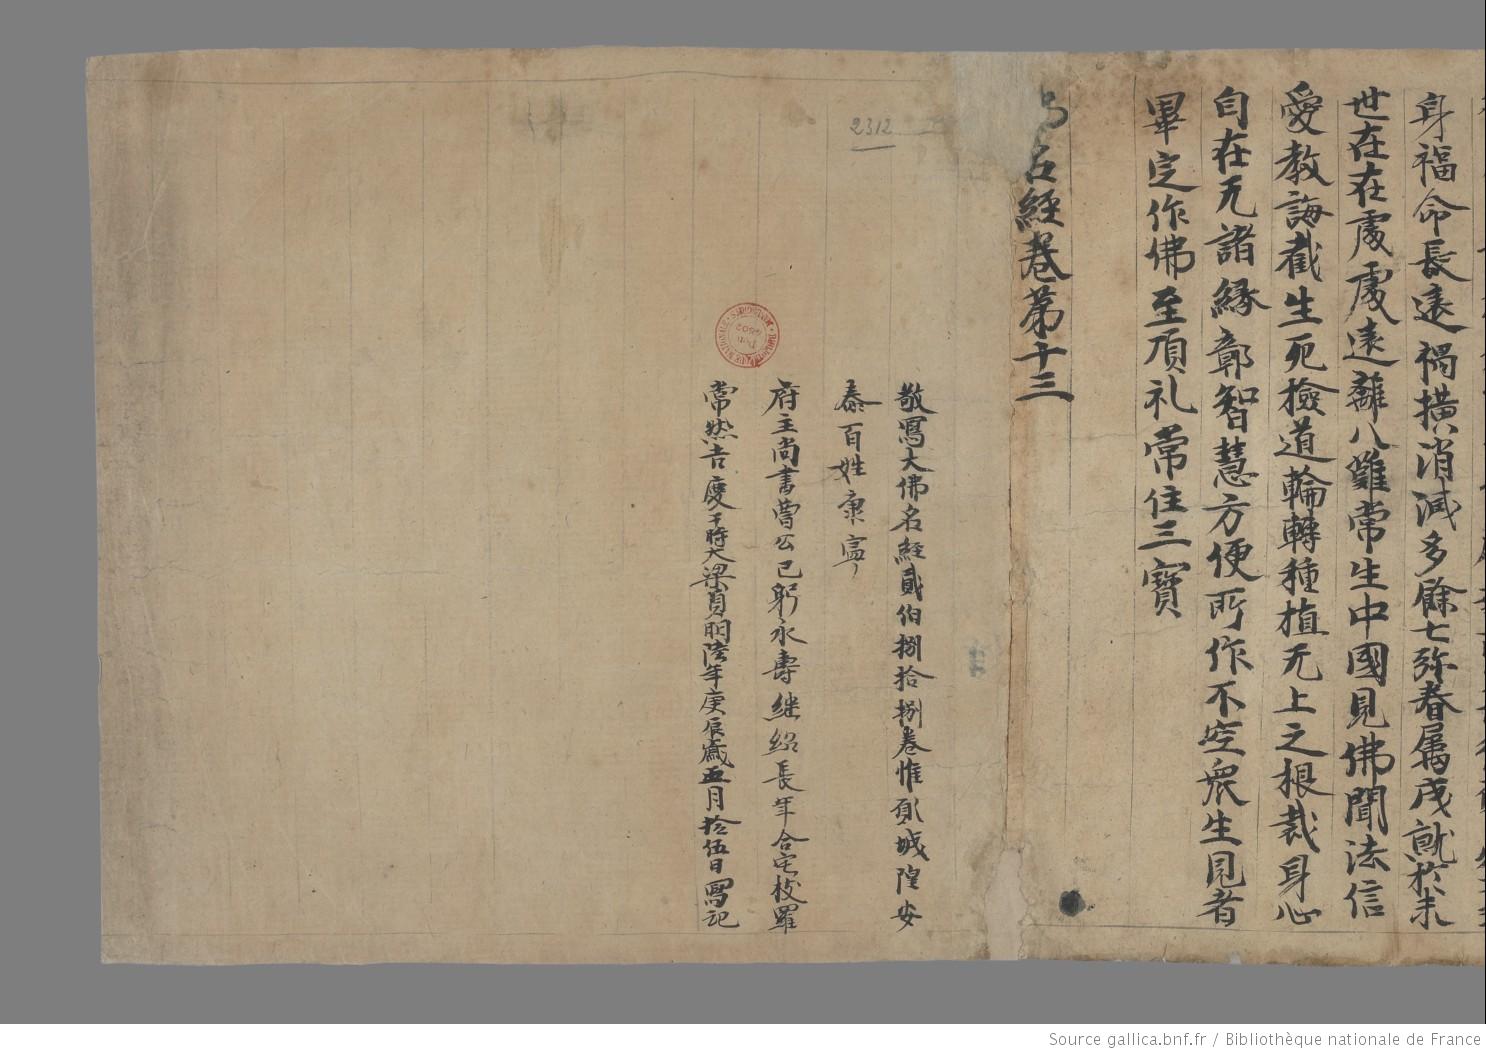 身福命長遠禍横消滅多餘七弥眷属成就於未
世在在處處遠離八難常生中國見佛聞法信
愛教誨截生死險道輪轉種植无上之根裁身心
自在无諸緣鄣智慧方便所作不空衆生見者
畢定作佛至頂礼常住三寶
名經卷第十三
敬寫大佛名經貳伯捌拾捌卷惟願城隍安
泰百姓康寧
府主尚書曹公己躬永壽繼紹長年合宅枝羅
常然吉慶于時大梁貞明陸年庚辰歲五月拾伍日寫記
2312
Source gallica.bnf.fr / Bibliothèque nationale de France